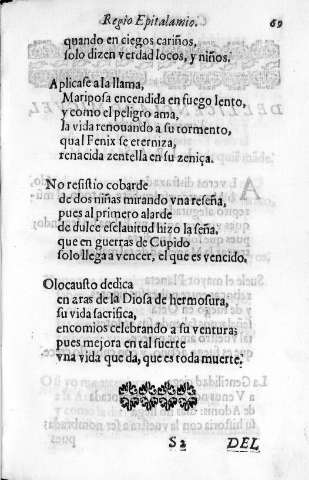 Regio Epitalamio. 69
quando en ciegos cariños,
solo dizen verdad locos, y niños.
Aplicase a la llama,
Mariposa encendida en fuego lento,
y como el peligro ama,
la vida renouando a su tormento,
qual Fenix se eterniza,
renacida zentella en su zeniça.
No resistio cobarde
de dos niñas mirando vna reseña,
pues al primero alarde
de dulce esclauitud hizo la seña,
que en guerras de Cupido
solo llega a vencer, el que es vencido.
Olocausto dedica
en aras de la Diosa de hermosura,
su vida sacrifica,
encomios celebrando a su ventura;
pues mejora en tal suerte
vna vida que da, que es toda muerte.
S2 DEL